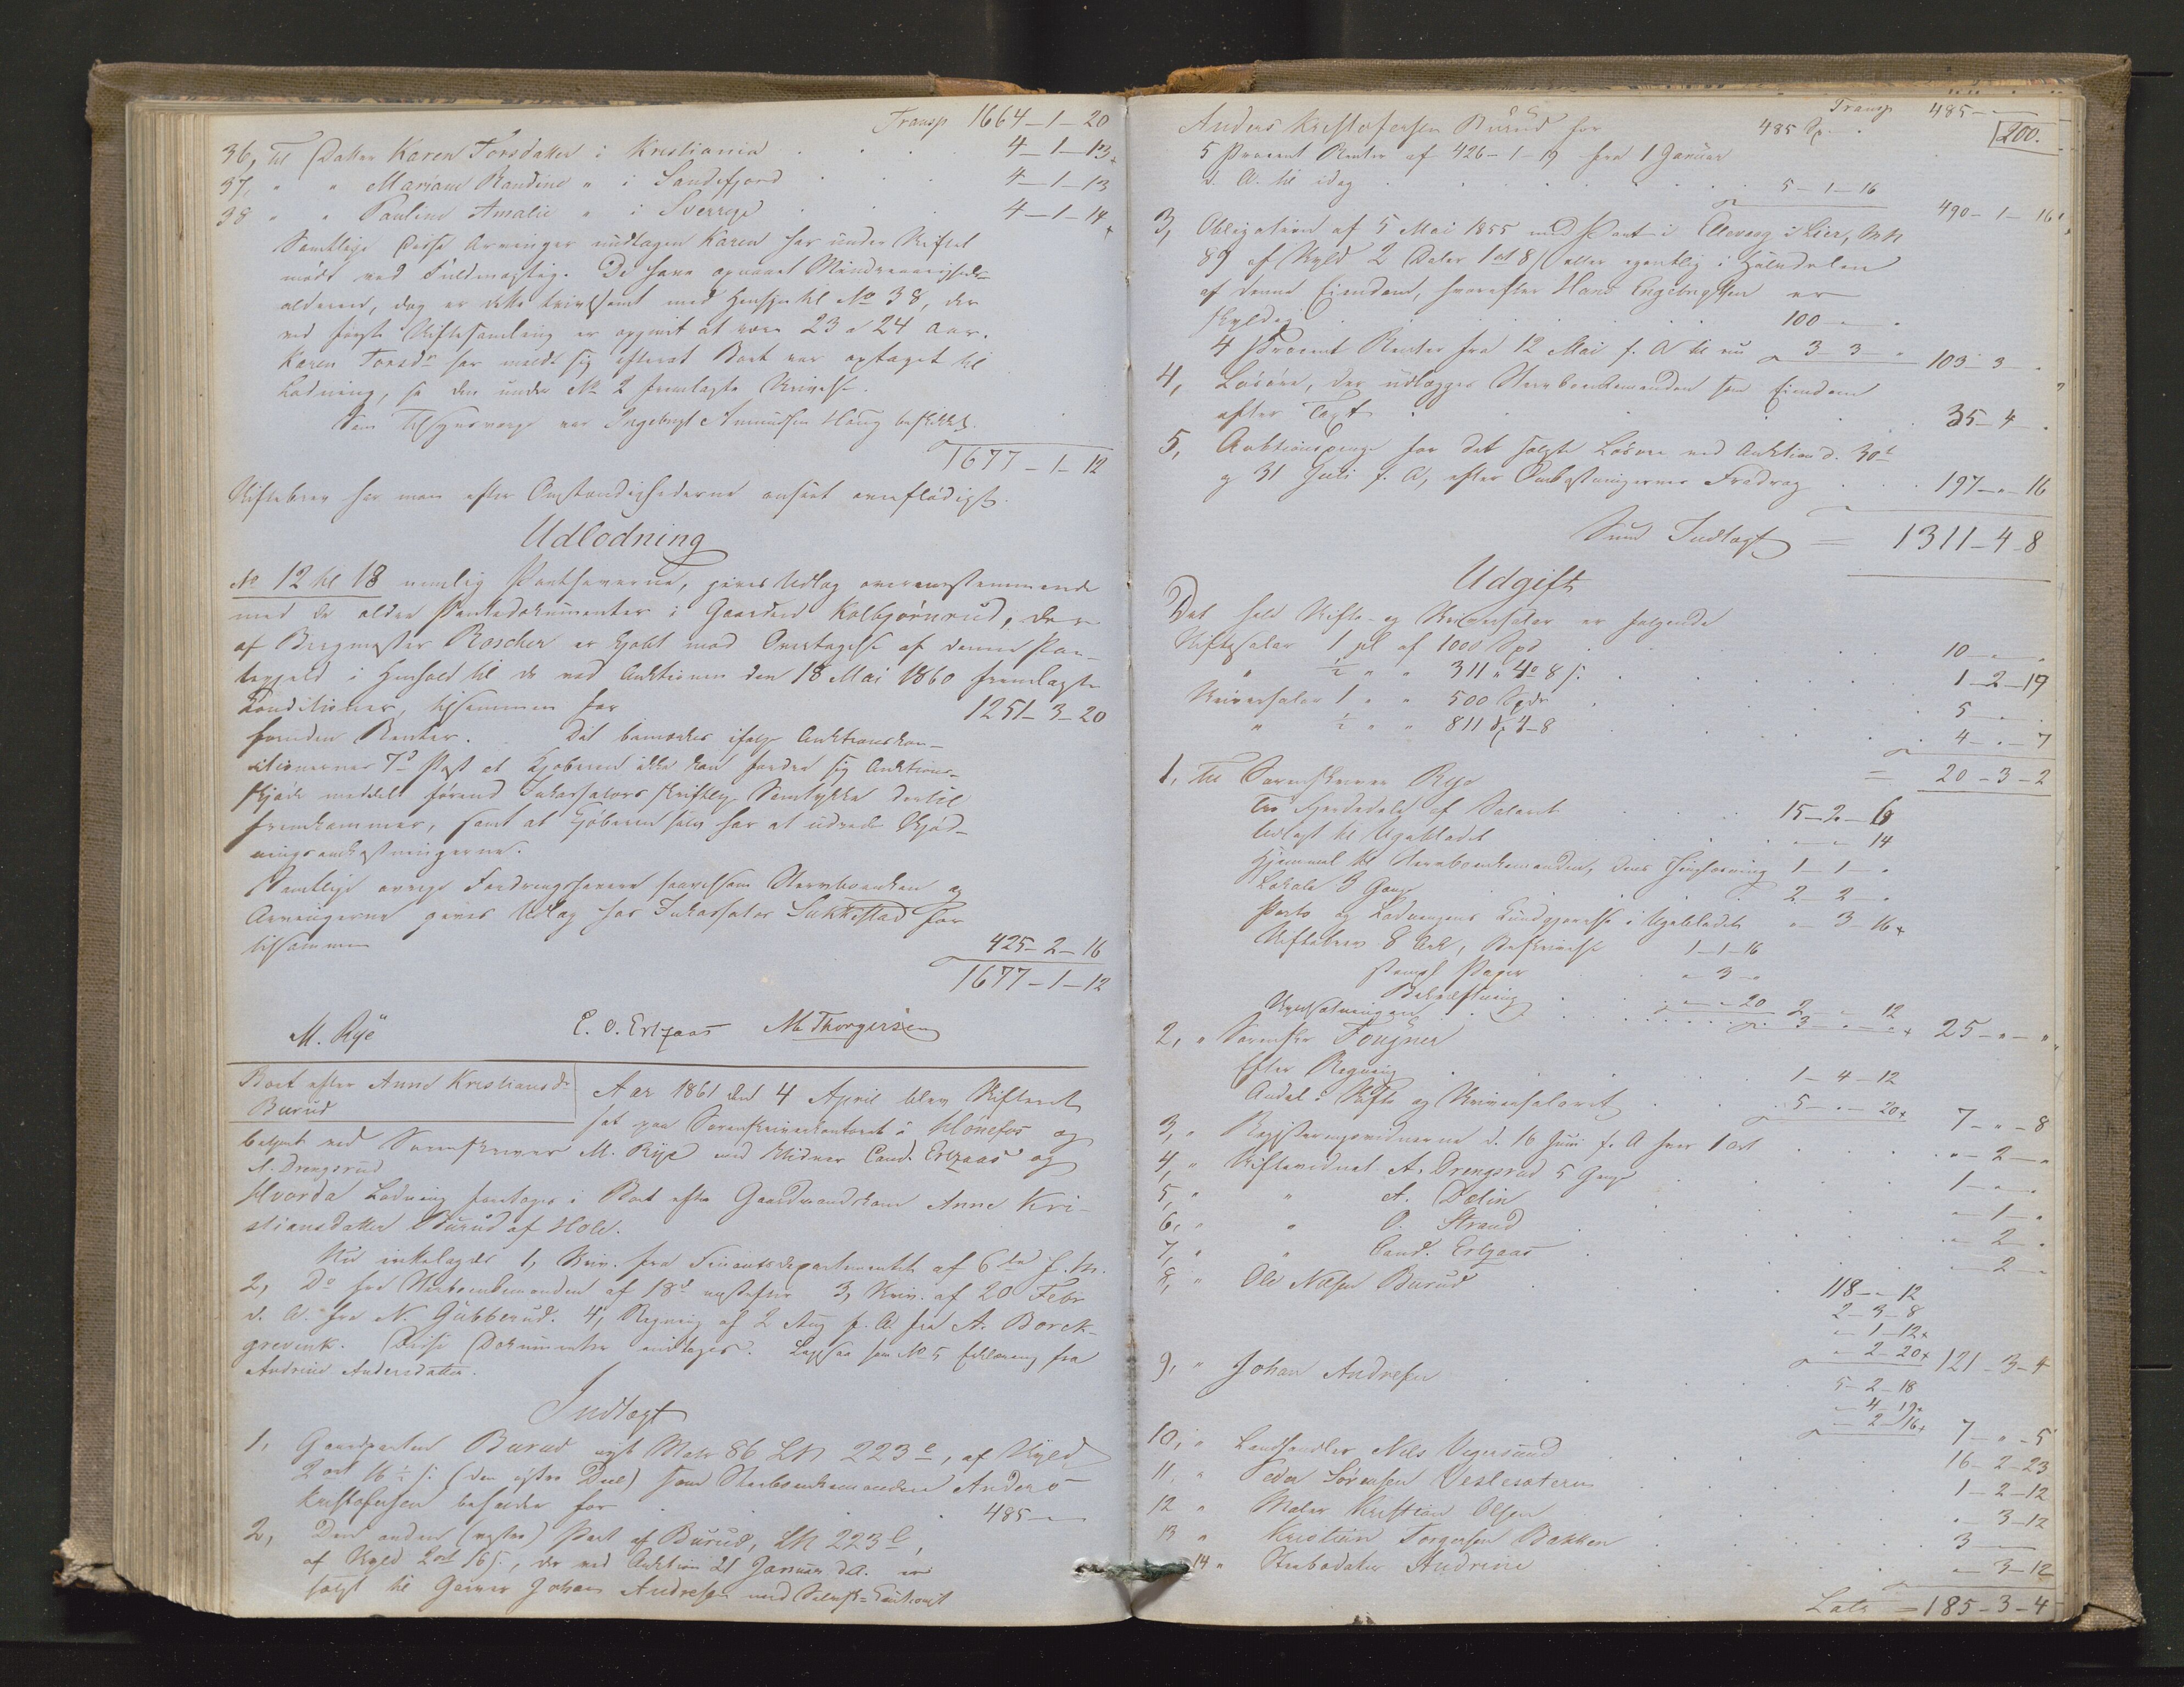 Transp 1664-1-20
36, til Datter Karen Torsdatter i Kristiania . . . 4-1-13
37, " " Mariane Randine " i Sandefjord . . . 4-1-13
38 " " Pauline Amalie " i Sverrige . . . 4-1-14
Samtlige disse Arvinger undtagen Karen har under Skiftet
mødt ved Fuldmægtig. De have opnaaet Myndigheds-
alderen, dog er dette tvivlsomt med Hensyn til No 38, der
ved første Skiftesamling er opgivet at være 23 a 24 Aar.
Karen Torsd. har meldt sig efterat Boet var optaget til
Lodning, se den under No 2 fremlagte Skrivelse.
Som Tilsynsværge var Ingebrigt Amundsen Haug beskikket.
1677-1-12
Skiftebrev har man efter Omstændighederne anseet overflødigt.
Udlodning
No 12 til 18 nemlig Panthaverne, gives Udlæg overensstemmende
med de ældre Pantedokumenter i Gaarden Kolbjørnrud, der
af Bergmester Roscher er kjøbt mod Overtagelse af denne Pan-
tegjeld i Henhold til de ved Auktionen den 18 Mai 1860 fremlagte
Konditioner, tilsammen for 1251-3-20
foruden Renter. Det bemærkes ifølge Auktionskon-
ditionernes 7de Post at Kjøberen ikke kan fordre sig Auktions-
skjøde meddelt førend Inkassators skriftlige Samtykke dertil
fremkommer, samt at Kjøberen selv har at udrede Skjød-
ningsomkostningerne.
Samtlige øvrige Fordringshavere saavelsom Stervboenken og
Arvingerne gives Udlæg hos Inkassator Sukkestad for
tilsammen 425-2-16
1677-1-12
M. Rye E. O. Erlzaas M. Thorgersen
Boet efter Anne Kristiansdr
Burud
Aar 1861 den 4 April blev Skifteret
sat paa Sorenskriverkontoret i Hønefos og
betjent ved Sorenskriver M. Rye med Vidner Cand. Erlzaas og
A. Drengsrud
Hvorda Lodning foretages i Boet efter Gaardmandskone Anne Kri-
stiansdatter Burud af Hole.
Nu irettelagdes 1, Skriv. fra Finantsdepartementet af 6te f. M.
2, Do fra Stervboenkemanden af 18de næstefter 3, Skriv. af 20 Febr
d. A. fra N. Gubberud. 4, Regning af 2 Aug f. A. fra A. Borch-
grevink. Disse Dokumenter indtages. Ligesaa som No 5 Erklæring fra
Andrine Andersdatter.
Indtægt
1, Gaardparten Burud nyt Matr 86 LN 223 c, af Skyld
2 ort 16 1/2 s. (den østre Deel) som Stervboenkemanden Anders
Kristofersen beholder for . . . 485-"-"
2, Den anden (vestre) Part af Burud, LN 223 b,
af Skyld 2 ort 16 s., der ved Auktion 21 Januar d.A. er
solgt til Garver Johan Andresen med Selvsk.-Cautionist
Transp 485-"-"
200.
Anders Kristofersen Burud for 485 Sp.
5 Procent Renter af 426-1-19 fra 1 Januar
d. A. til idag . . . 5-1-16
490-1-16
3, Obligation af 5 Mai 1855 med Pant i Ellevang i Lier, MN
89 af Skyld 2 Daler 1 ort 8 s eller egentlig i Halvdelen
af denne Eiendom, hvorefter Hans Engebrigtsen er
skyldig . . . 100-"-"
4 Procent Renter fra 12 Mai f. A til nu 3-3-" 103-3-"
4, Løsøre, der udlægges Stervboenkemanden som Eiendom
efter Taxt . . . 35-4-"
5, Auktionspenge for det solgte Løsøre ved Auktion d. 30te
og 31 Juli f. A, efter Omkostningernes Fradrag . . . 197-"-16
Sum Indtægt = 1311-4-8
Udgift
Det hele Skifte- og Skriversalær er følgende
Skiftesalær 1 pC af 1000 Spd . . . 10-"-"
" 1/2 " " 311 " 4 " 8 s. . . . 1-2-19
Skriversalær 1 " " 500 Spdr . . . 5-"-"
" 1/2 " " 811 Sp 4-8 . . . 4-"-7
= 20-3-2
1, Til Sorenskriver Rye
Tre Fjerdedele af Salæret . . . 15-2-6
Udlagt til Ugebladet . . . "-"-14
Hjemmel til Stervboenkemanden, dens Thinglæsning 1-1-"
Lokale 3 Gange . . . 2-2-"
Porto og Lodningens Kundgjørelse i Ugebladet "-3-16
Skiftebrev 8 Ark, Beskrivelse 1-1-16
stempl. Papir "-3-"
Bekræftning "-"-20 2-"-12
. . . 3-"-" 25-"-"
2, " Sorenskr. Fougner
Efter Regning . . . 1-4-12
Andel i Skifte og Skriversalæret . . . 5-"-20 7-"-8
3, " Registeringsvidnerne d. 16 Juni f. A hver 1 Ort . . . "-2-"
4, " Skiftevidnet A. Drengsrud 5 Gange . . . 1-"-"
5, " " A. Dælin . . . "-1-"
6, " " O. Strand . . . "-2-"
7, " " Cand. Erlzaas . . . "-2-"
8, " Ole Nilsen Burud . . . 118-"-12
2-3-8
"-1-12
"-2-20 121-3-4
9, " Johan Andresen . . . 5-2-18
"-4-19
"-2-16 7-"-5
10, " Landhandler Nils Vegersund . . . 16-2-23
11, " Peder Sørensen Veslesæteren . . . 1-2-12
12 " Maler Kristian Olsen . . . "-3-12
13 " Kristian Torgersen Bakken . . . 3-"-"
14 " Stervbodatter Andrine . . . "-3-12
Latr. = 185-3-4